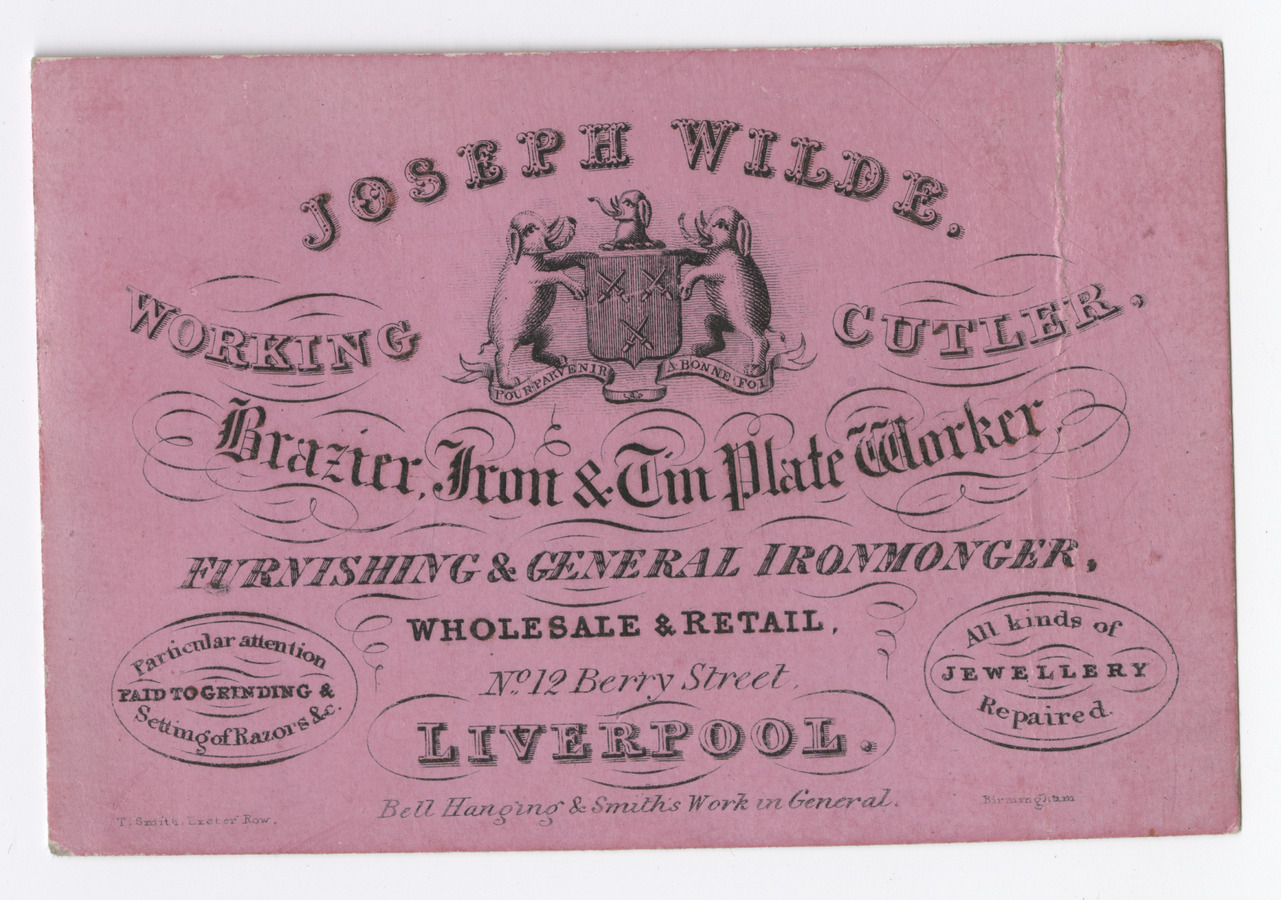 JOSEPH WILDE.
WORKING CUTLER,
POUR PARVENIR A BONNE FOI
Brazier, Iron & Tin Plate Worker,
FURNISHING & GENERAL IRONMONGER,
WHOLESALE & RETAIL,
No. 12 Berry Street,
LIVERPOOL.
Particular attention
PAID TO GRINDING &
Setting of Razors &c.
All kinds of
JEWELLERY
Repaired.
Bell Hanging & Smith's Work in General.
T. Smith, Exeter Row.
Birmingham